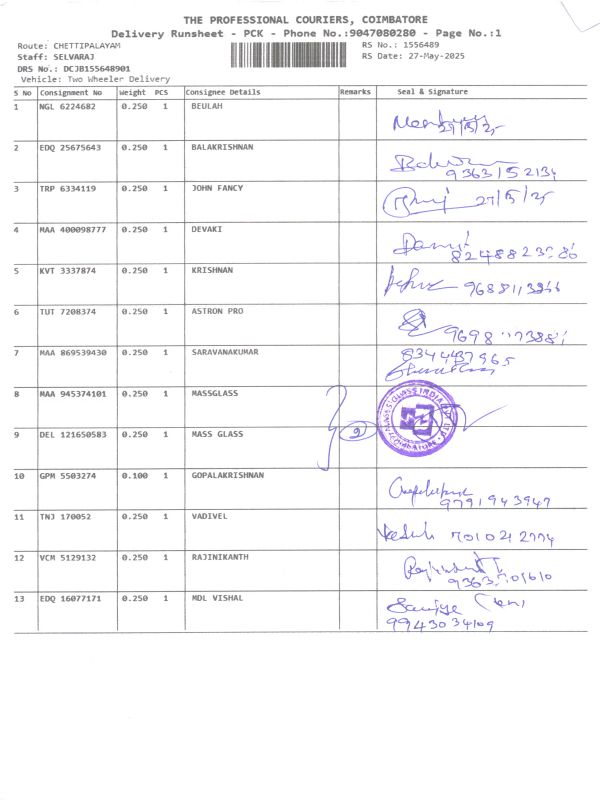 THE PROFESSIONAL COURIERS, COIMBATORE
Delivery Runsheet - PCK - Phone No.:9047080280 - Page No.:1
Route: CHETTIPALAYAM RS No.: 1556489
Staff: SELVARAJ RS Date: 27-May-2025
DRS No.: DCJB155648901
Vehicle: Two Wheeler Delivery
S No Consignment No Weight PCS Consignee Details Remarks Seal & Signature
1 NGL 6224682 0.250 1 BEULAH
27/5/25
2 EDQ 25675643 0.250 1 BALAKRISHNAN
9363152134
3 TRP 6334119 0.250 1 JOHN FANCY
27/5/25
4 MAA 400098777 0.250 1 DEVAKI
5 KVT 3337874 0.250 1 KRISHNAN
6 TUT 7208374 0.250 1 ASTRON PRO
7 MAA 869539430 0.250 1 SARAVANAKUMAR 8344437965
8 MAA 945374101 0.250 1 MASSGLASS
2
9 DEL 121650583 0.250 1 MASS GLASS
COIMBATORE
10 GPM 5503274 0.100 1 GOPALAKRISHNAN
9791943947
11 TNJ 170052 0.250 1 VADIVEL
12 VCM 5129132 0.250 1 RAJINIKANTH
13 EDQ 16077171 0.250 1 MDL VISHAL
9943034109